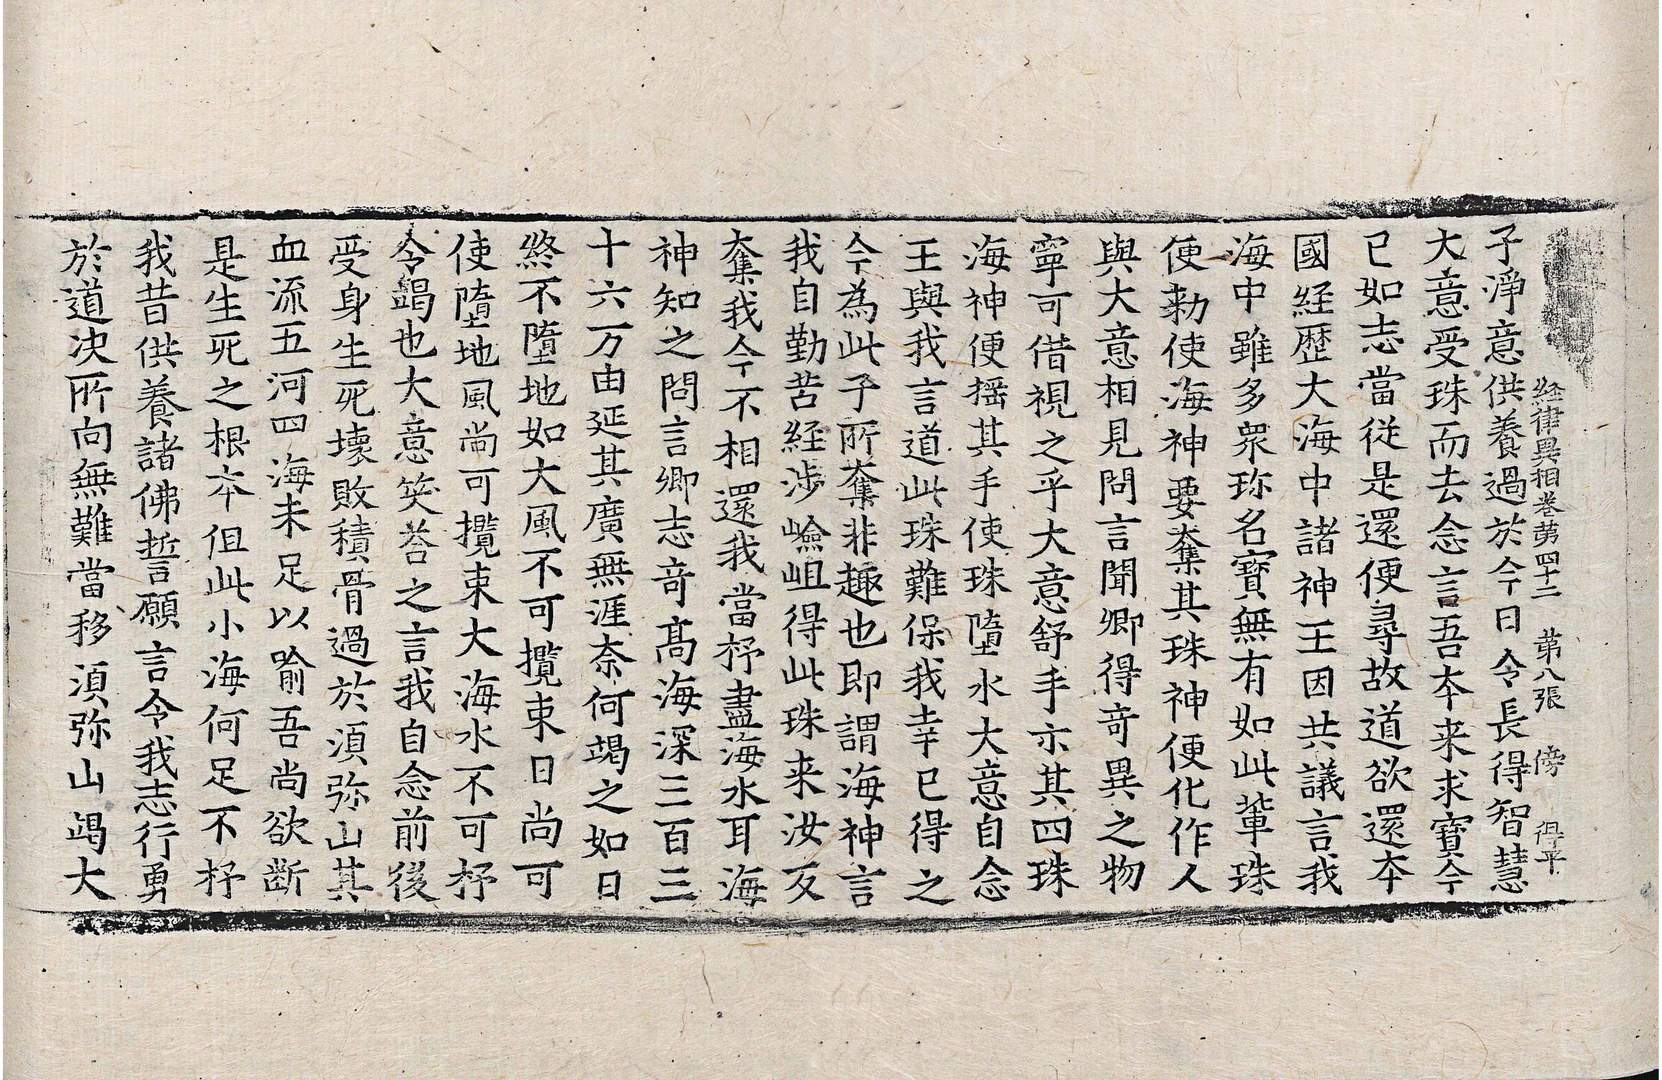 経律異相巻苐四十二 苐八張 傍 得平
子淨意供養過於今日令長得智慧
大意受珠而去念言吾夲来求寶今
已如志當従是還便尋故道欲還夲
國経歴大海中諸神王因共議言我
海中雖多衆珎名寶無有如此軰珠
便勑使海神要奪其珠神便化作人
與大意相見問言聞卿得竒異之物
寧可借視之乎大意舒手示其四珠
海神便揺其手使珠墮水大意自念
王與我言道此珠難保我幸已得之
今為此子所奪非趣也即謂海神言
我自勤苦経渉嶮岨得此珠来汝反
奪我今不相還我當杼盡海水耳海
神知之問言卿志竒髙海深三百三
十六万由延其廣無涯奈何竭之如日
終不墮地如大風不可攬束日尚可
使墮地風尚可攬束大海水不可杼
令竭也大意笑荅之言我自念前後
受身生死壊敗積骨過於湏弥山其
血流五河四海未足以喻吾尚欲斷
是生死之根夲但此小海何足不杼
我昔供養諸佛誓願言令我志行勇
於道决所向無難當移湏弥山竭大